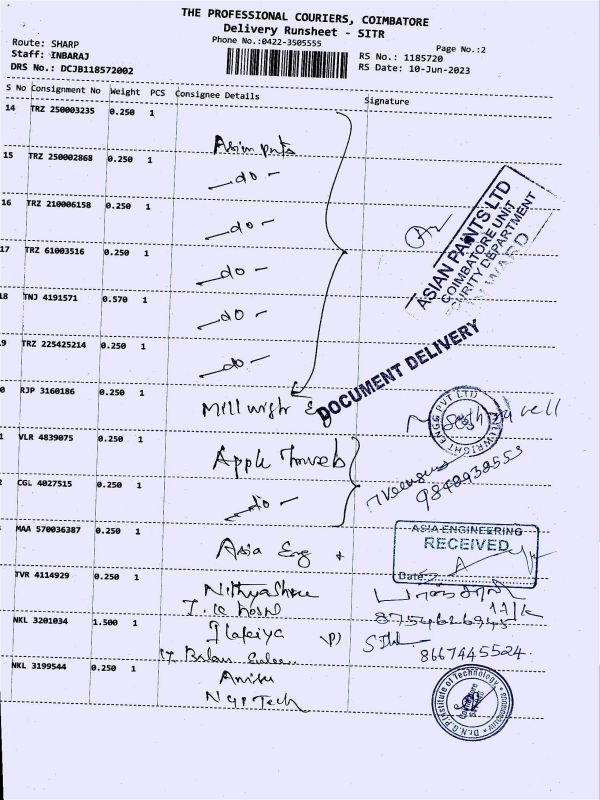 THE PROFESSIONAL COURIERS, COIMBATORE
Delivery Runsheet - SITR
Phone No.:0422-3505555
Page No.:2
Route: SHARP
Staff: INBARAJ
DRS No.: DCJB118572002
RS No.: 1185720
RS Date: 10-Jun-2023
S No Consignment No Weight PCS Consignee Details Signature
14 TRZ 250003235 0.250 1
Asian pnts
15 TRZ 250002868 0.250 1
-do-
16 TRZ 210006158 0.250 1
-do-
17 TRZ 61003516 0.250 1
-do-
8 TNJ 4191571 0.570 1
-do-
9 TRZ 225425214 0.250 1
-do-
ASIAN PAINTS LTD
COIMBATORE UNIT
CURITY DEPARTMENT
INWARD
DOCUMENT DELIVERY
0 RJP 3160186 0.250 1
Millwright Eng
MILLWRIGHT ENGG PVT LTD
1 VLR 4839075 0.250 1
Apple
CGL 4027515 0.250 1
-do-
MAA 570036387 0.250 1
Asia Eng
ASIA ENGINEERING
RECEIVED
Date:
TVR 4114929 0.250 1
Nithyashree
8754626945
NKL 3201034 1.500 1
8667445524
NKL 3199544 0.250 1
NGP Tech
Dr.N.G.P. Institute of Technology